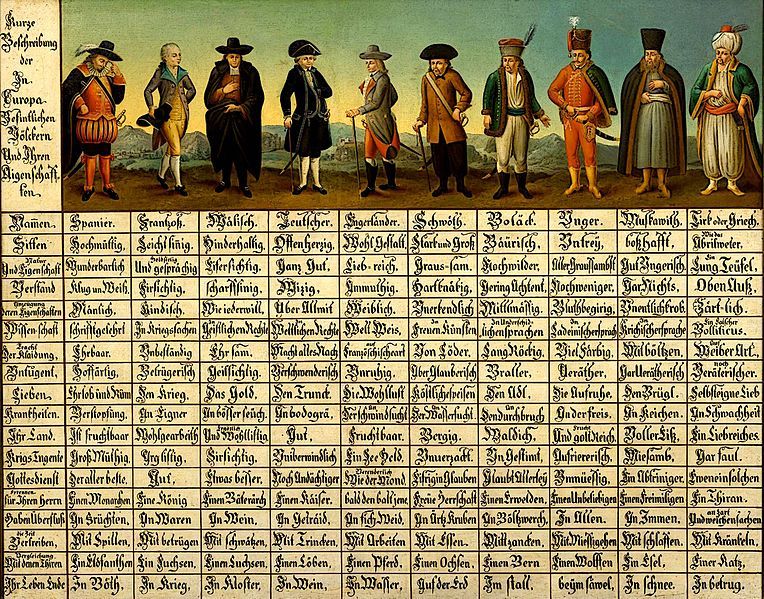 Kurze
Beschreibung
der
In
Europa
Befintlichen
Völckern
Und Ihren
Aigenschaff-
ten
Namen. Spanier. Frantzoß. Wälisch. Teutscher. Engerländer. Schwöth. Boläck. Unger. Muskawith. Tirk oder Griech.
Sitten Hochmüttig, Leichtsinig, Hinderhaltig, Offenherzig, Wohl Gestalt, Starck und Groß Bäurisch, Untrey, boßhafft,
Und Eigenschaft Wunderbarlich Und gesprächig Eifersichtig, Ganz Gut, Lieb-reich, Graus-sam, Hochwilder, Aller Graussambst Gut Ungerisch, Lung Teüfel.
Verstand Klug un Weiß, Firsichtig, scharffsinig, Wizig, Ammuthig, Hartknätig, Gering Achtent, Nochweniger, Gar Nichts, Oben Auß,
deren Eigenschaften Mänlich, Kindisch, Wie iederwill, Über Allmit Weiblich, Unerkendlich Mittlmässig, Bluthbegirig, Unentlichkrob, Zärt-lich,
Wissenschaft schrifftgelehrt In Kriegssachen Geistlichen Rechte Weltlichen Rechte Welt Weis, Freuen Künsten lächensprachen Ladeinischersprach Krichischersprache Bollidicus.
Der Klaidung, Ehrbaar, Unbeständig Ehrsam, Macht alles Nach Französchischeart Von Löder, Lang Röckig, Viel Färbig, Mit böltzen, Weiber Art,
Untugent, Hoffärtig, Betrügerisch Geillsichtig, Verschwenderisch Unruhig, Über Glauberisch Braller, Veräther, Gar Verätherisch Verätterischer,
Lieben, Ehrlob und Rüm Den Krieg, Das Gold, Den Trunck, Die Wohllust Köstlichespeisen Den Adl, Die Aufruhe, Den Brügl, Selbsteigne Lieb
Krankheiten, Verstopfung, An Eigner An bösser seüch, An bodogrä, Der Wassersucht Den durchbruch An der freis, An Keichen, An Schwachheit
Ihr Land, Ist fruchtbaar Wohlgearbeith Und Wohllistig Gut, Fruchtbaar, Bergig, Waldich, Und goltReich, Voller Eiß, Ein Liebreiches
Krigs Tugente Groß Müthig, Arg listig, Firsichtig, Uniberwindlich Ein See Held, Unverzackt, Un Gestimt, Aufriererisch, Miesamb, Gar faul,
Gottesdienst Der aller beste, Gut, Etwas besser, Noch Andächtiger Wie der Mond, Eifrig in Glauben Glaubt Allerley Unmüessig, Ein Abtriniger, Eweneinsolchen
für Ihren herrn Einen Monarchen Eine König, Einen Bäterärch Einen Kaiser, bald den balt jene Freie Herrschaft Einen Erwelden, Einen Unbeliebigen Einen Freimilligen Ein Thiran,
Haben Überfluß In Früchten, An Waren An Wein, An Getraid, An fich Weid, An Ärtz Kruben An Böltzwerch, In Allen, In Immen, Und weichen sachen
Die Zeit Vertreiben, Mit Spillen, Mit betrügen Mit schwätzen, Mit Trincken, Mit Arbeiten Mit Essen, Mit zancken, Mit Miessigehen Mit schlaffen, Mit Kränkeln,
Vergleichung Mit denen Thiren Ein Elofanthen Ein Fuchsen, Einen Luchsen, Einen Löben, Einen Pferd, Einen Ochsen, Einen Bern Einen Wolffen Ein Esel, Einer Katz,
Ihr Leben Ende In Böth, In Krieg, In Kloster, In Wein, In Wasser, Auf der Erd Im stall, beym säwel, In schnee, In betrug,